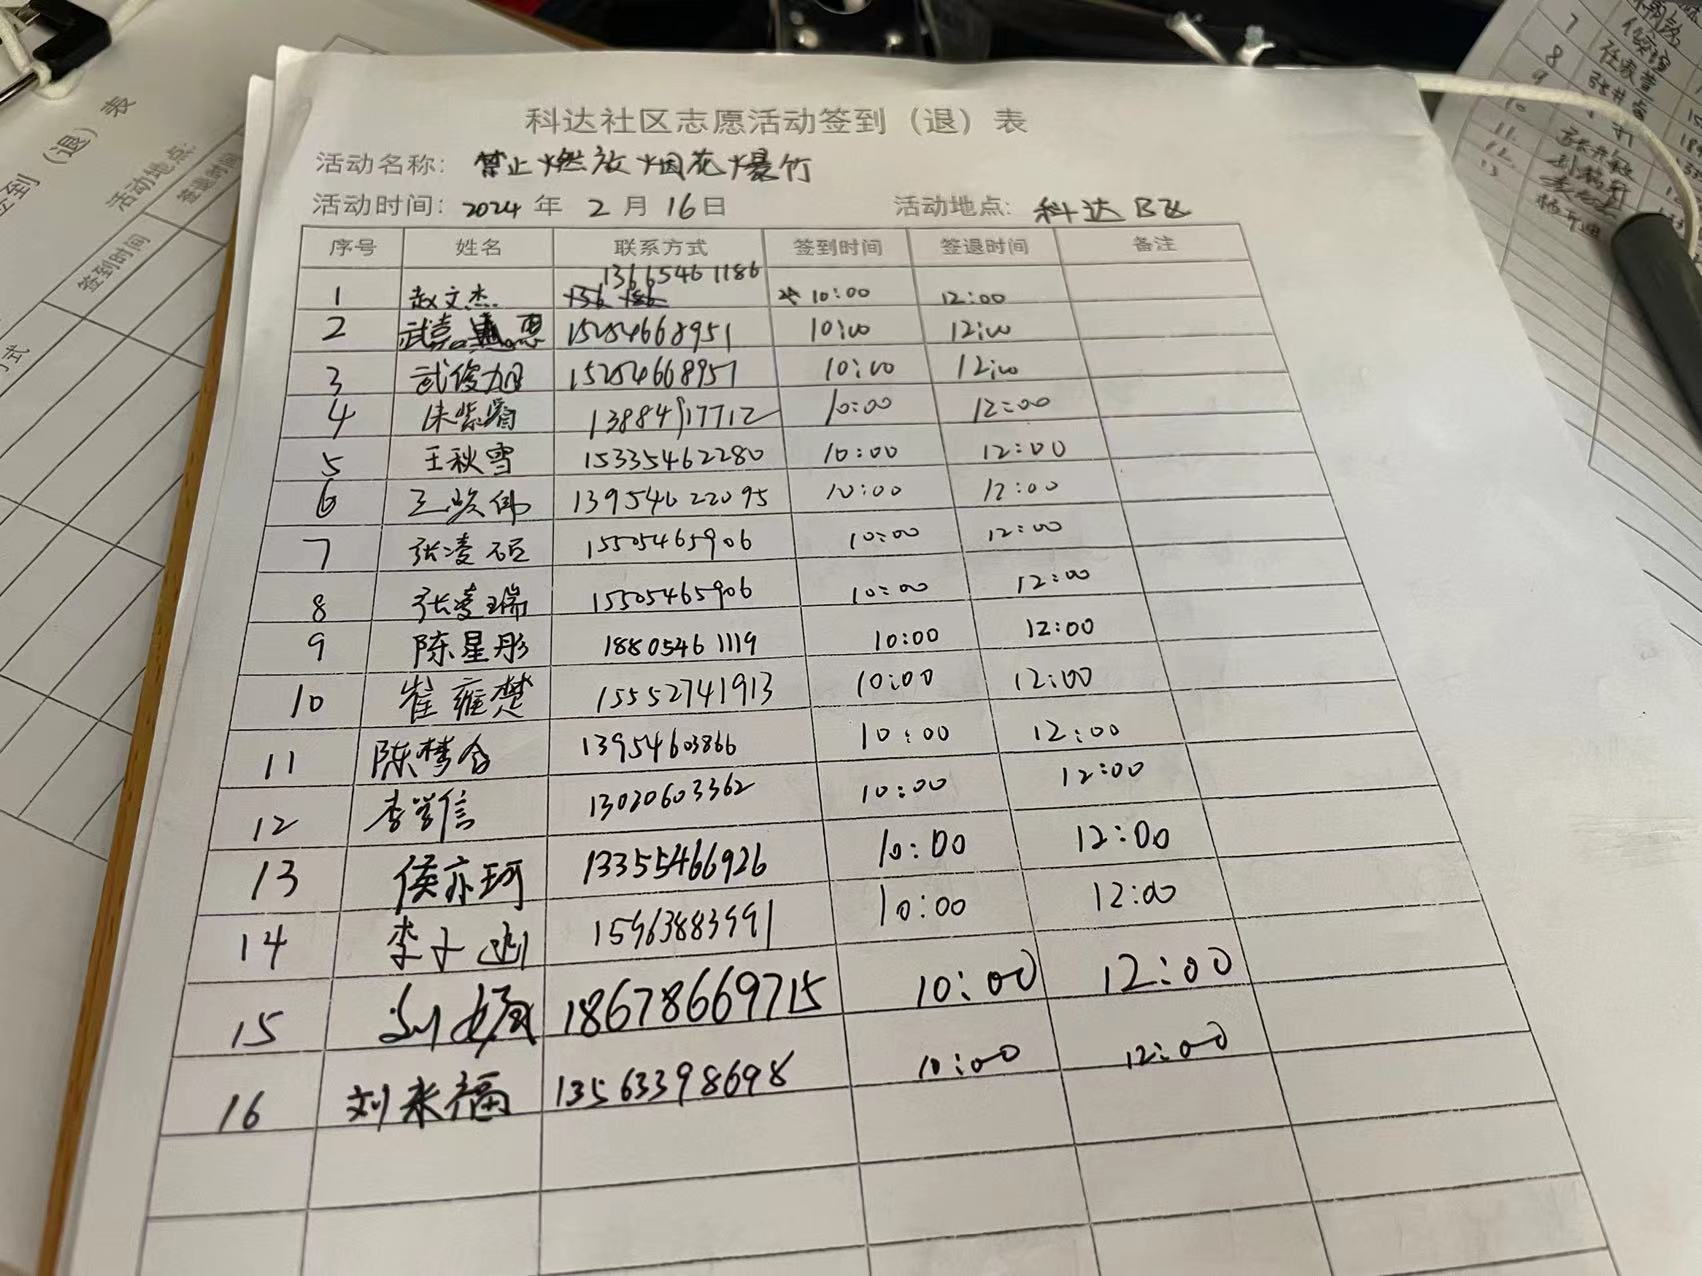 科达社区志愿活动签到（退）表
活动名称：禁止燃放烟花爆竹
活动时间：2024年2月16日 活动地点：科达B区
序号 姓名 联系方式 签到时间 签退时间 备注
1 赵文杰 13665461186 10:00 12:00
2 武 思 15254668951 10:00 12:00
3 武俊旭 15254668951 10:00 12:00
4 朱紫 13884917712 10:00 12:00
5 王秋雪 15335462280 10:00 12:00
6 王 伟 13954622095 10:00 12:00
7 张凌硕 15505465906 10:00 12:00
8 张凌瑞 15505465906 10:00 12:00
9 陈星彤 18805461119 10:00 12:00
10 崔雍楚 15552741913 10:00 12:00
11 陈梦 13954603866 10:00 12:00
12 李学信 13020603362 10:00 12:00
13 侯亦珂 13355466926 10:00 12:00
14 李 15963883991 10:00 12:00
15 刘 18678669715 10:00 12:00
16 刘来福 13563398698 10:00 12:00
到（退）表
活动地点：
签到时间 签退时间
式
7
8
9
10
11
12
13